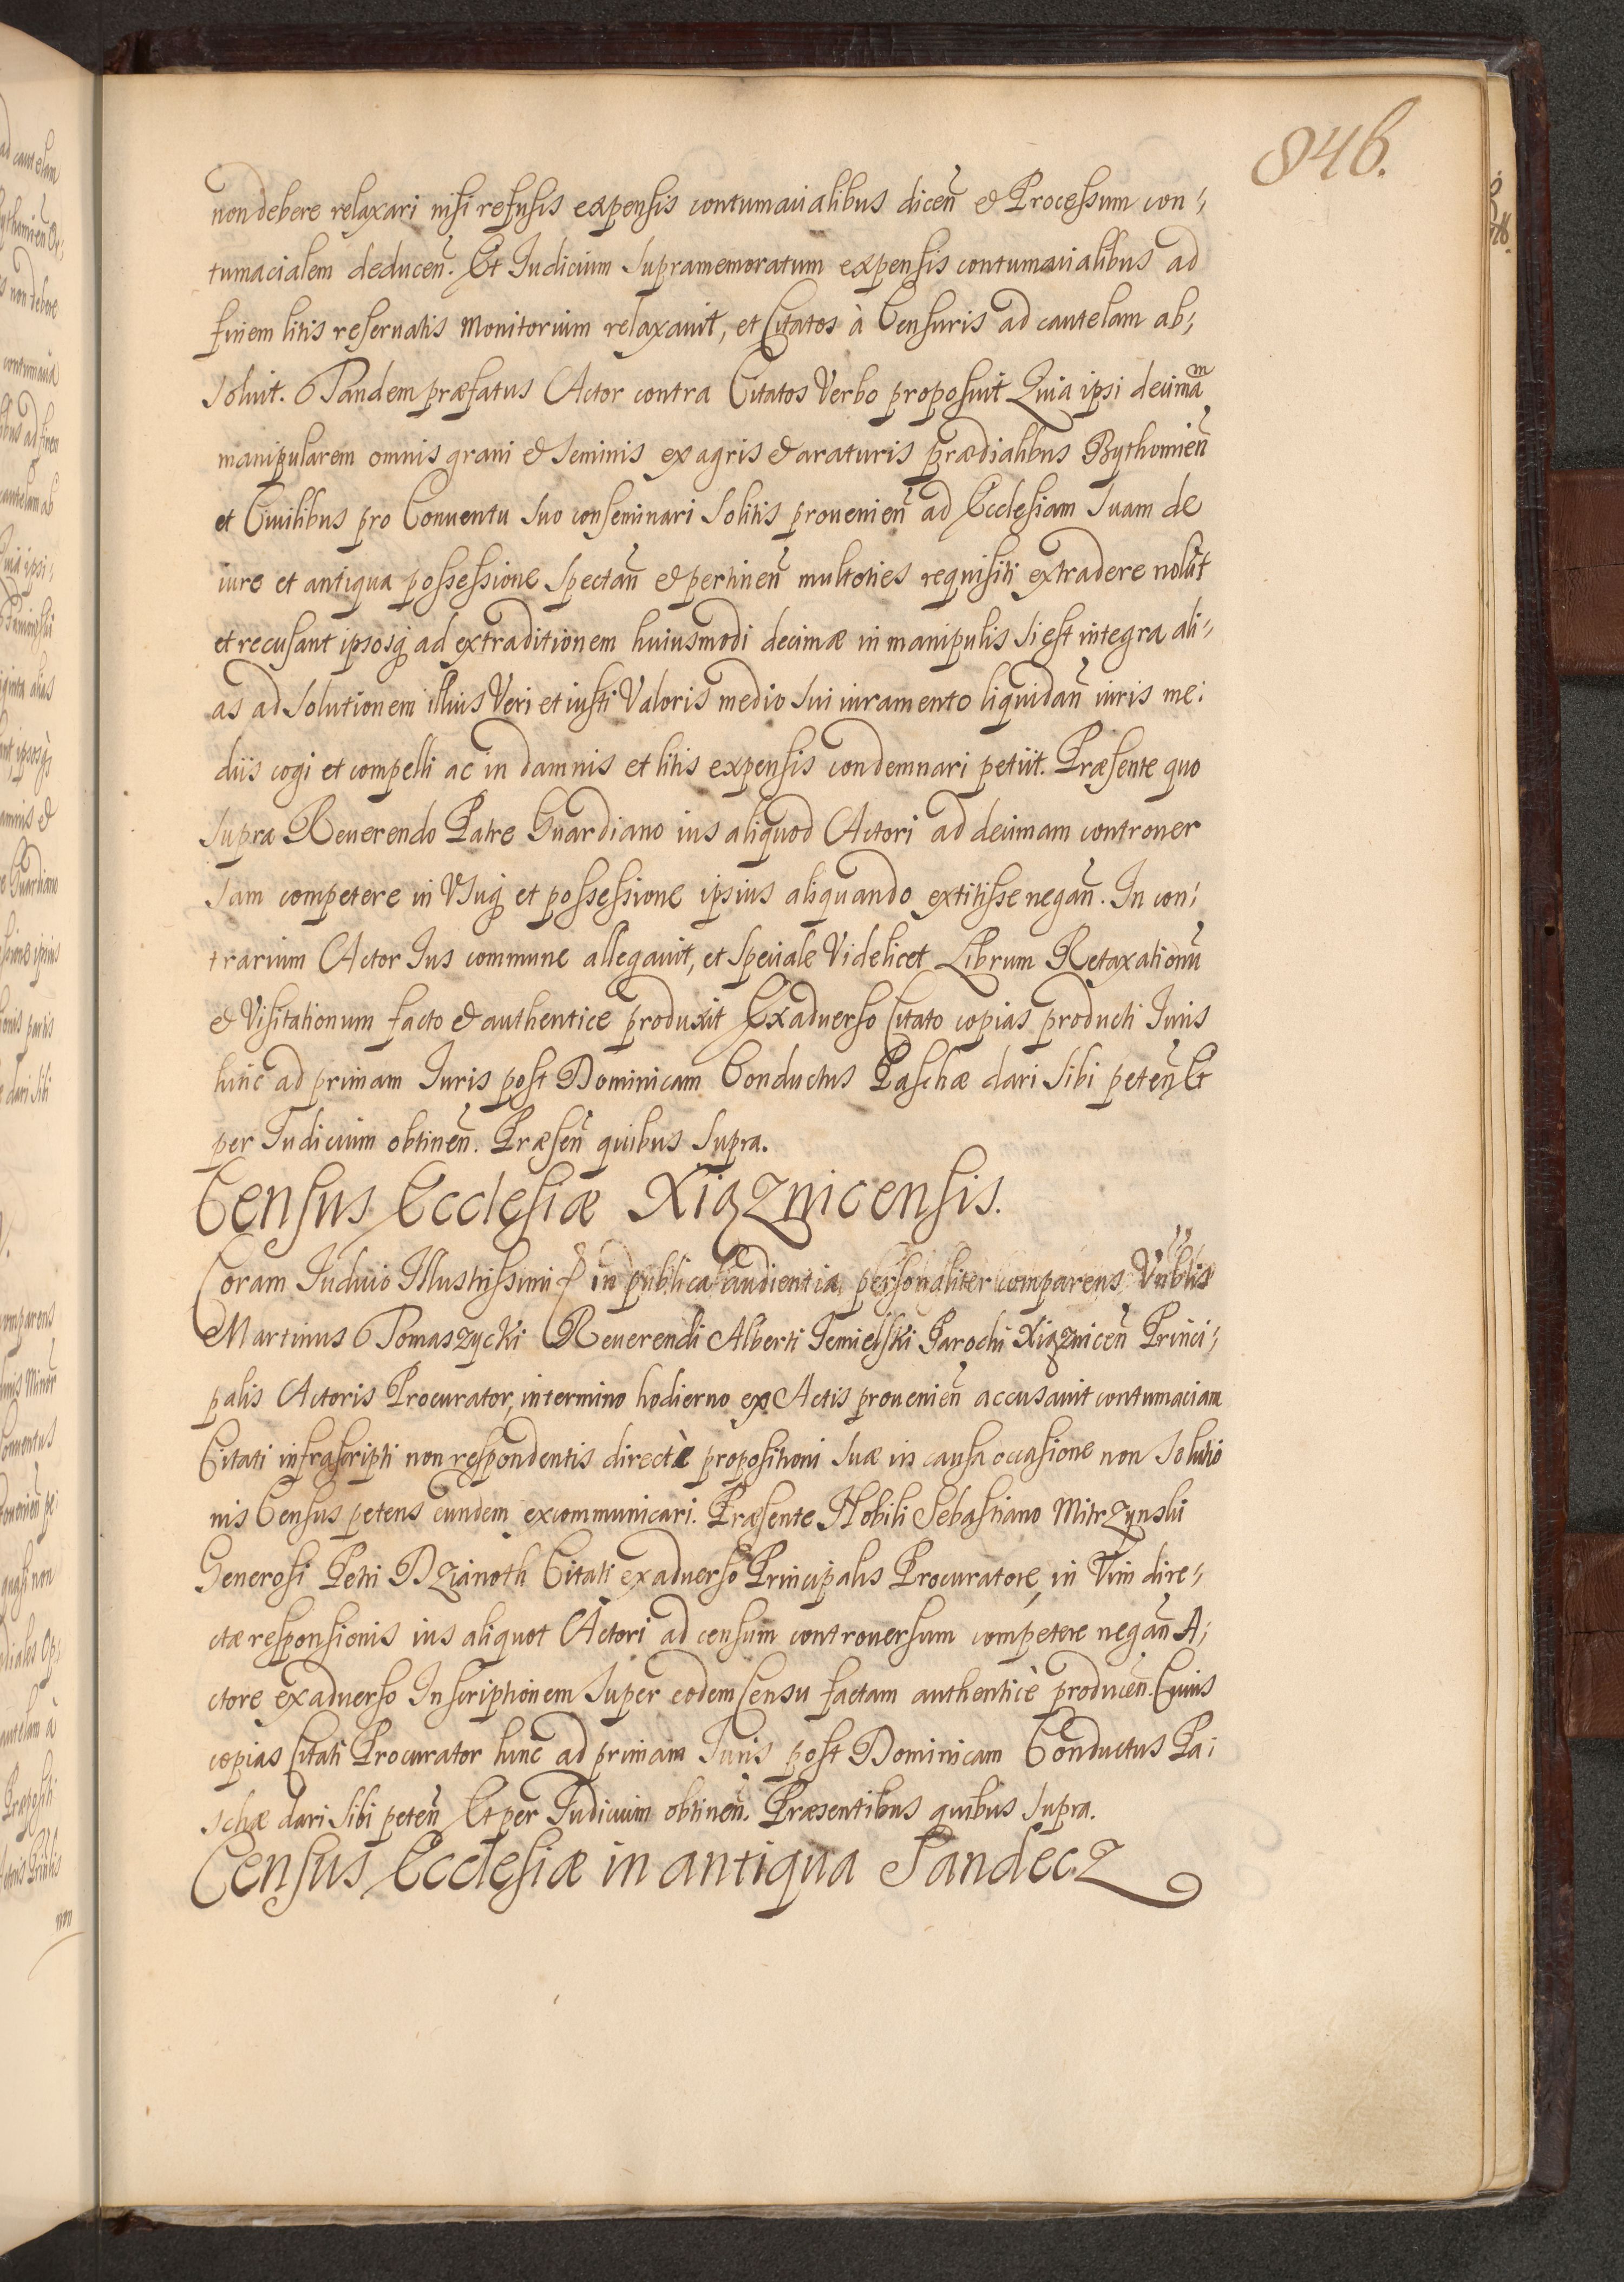 846.
non debere relaxari nisi refusis expensis contumacialibus dicen̄ & Processum con-
tumacialem deducen̄. Et Iudicium supramemoratum expensis contumacialibus ad
finem litis reseruatis Monitorium relaxauit, et Citatos à Censuris ad cautelam ab-
soluit. Tandem præfatus Actor contra Citatos Verbo proposuit Quia ipsi decimam
manipularem omnis grani & seminis ex agris & araturis prædialibus Bythomien̄
et Ciuilibus pro Conuentu suo conseminari solitis prouenien̄ ad Ecclesiam suam de
iure et antiqua possessione spectan̄ & pertinen̄ multoties requisiti extradere nolūt
et recusant ipsosq ad extraditionem huiusmodi decimæ in manipulis si est integra ali-
as ad solutionem illius Veri et iusti Valoris medio sui iuramento liquidan̄ iuris me-
diis cogi et compelli ac in damnis et litis expensis condemnari petiit. Præsente quo
supra Reuerendo Patre Guardiano ius aliquod Actori ad decimam controuer
sam competere in Vsuq et possessione ipsius aliquando extitisse negan̄. In con-
trarium Actor Ius commune allegauit, et speciale Videlicet Librum Retaxationū
& Visitationum facto & authentice produxit Exaduerso Citato copias producti Iuris
hinc ad primam Iuris post Dominicam Conductus Paschæ dari sibi peten̄ Et
per Iudicium obtinen̄. Præsen̄ quibus supra.
Census Ecclesiæ Xiąznicensis.
Coram Iudicio Illustrissimi & in publica audientia personaliter comparens Nrblis
Martinus Tomaszycki Reuerendi Alberti Temielski Parochi Xiąznicen̄ Princi-
palis Actoris Procurator, in termino hodierno ex Actis prouenien̄ accusauit contumaciam
Citati infrascripti non respondentis directè propositioni suæ in causa occasione non solutio
nis Census petens eundem excommunicari. Præsente Nobili Sebastiano Mitrzynski
Generosi Petri Dzianoth Citati exaduerso Principalis Procuratore, in Vim dire-
ctæ responsionis ius aliquot Actori ad censum controuersum competere negan̄ A-
ctore exaduerso Inscriptionem super eodem Censu factam authenticè producen̄. Cuius
copias Citati Procurator hinc ad primam Iuris post Dominicam Conductus Pa-
schæ dari sibi peten̄ Et per Iudicium obtinen̄. Præsentibus quibus supra.
Census Ecclesiæ in antiqua Sandecz